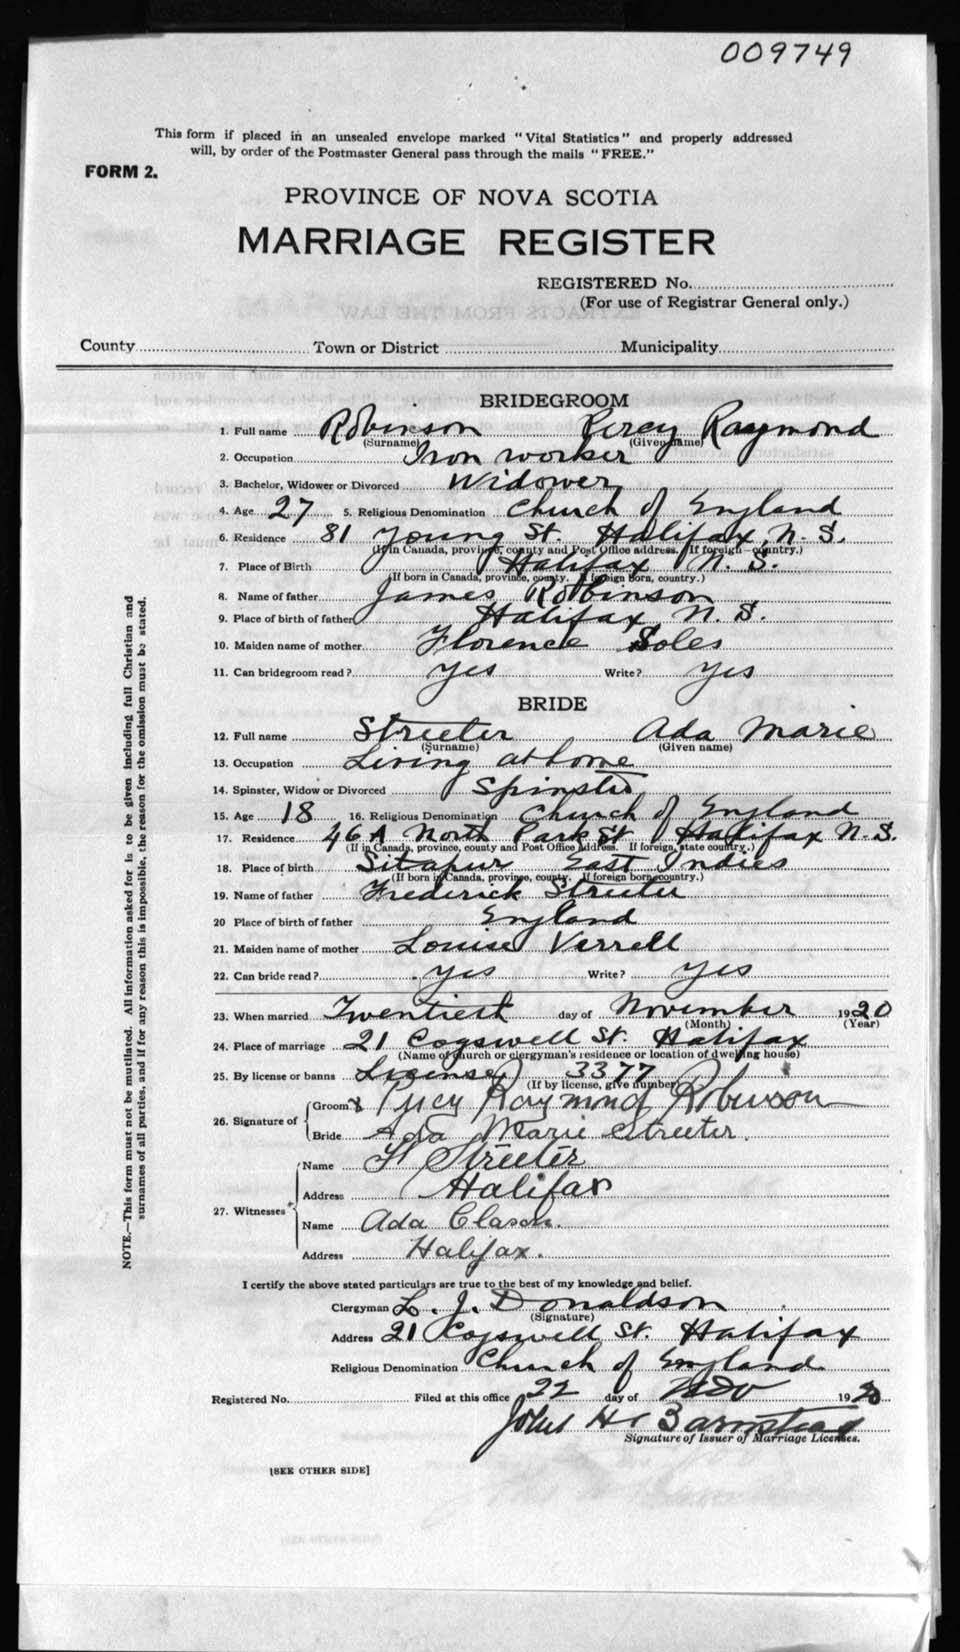 009749
This form if placed in an unsealed envelope marked "Vital Statistics" and properly addressed
will, by order of the Postmaster General pass through the mails "FREE."
FORM 2.
PROVINCE OF NOVA SCOTIA
MARRIAGE REGISTER
REGISTERED No.
(For use of Registrar General only.)
County Town or District Municipality
BRIDEGROOM
1. Full name Robinson Percy Raymond
(Surname) (Given name)
2. Occupation Iron worker
3. Bachelor, Widower or Divorced Widower
4. Age 27 5. Religious Denomination Church of England
6. Residence 81 Young St. Halifax, N. S.
(If in Canada, province, county and Post Office address. If foreign—country.)
7. Place of Birth Halifax N. S.
(If born in Canada, province, county. If foreign born, country.)
8. Name of father James Robinson
9. Place of birth of father Halifax, N. S.
10. Maiden name of mother Florence Soles
11. Can bridegroom read? Yes Write? Yes
BRIDE
12. Full name Streeter Ada Marie
(Surname) (Given name)
13. Occupation Living at home
14. Spinster, Widow or Divorced Spinster
15. Age 18 16. Religious Denomination Church of England
17. Residence 46A North Park St Halifax N. S.
(If in Canada, province, county and Post Office Address. If foreign, state country.)
18. Place of birth Sitapur East Indies
(If born in Canada, province, county. If foreign born country.)
19. Name of father Frederick Streeter
20 Place of birth of father England
21. Maiden name of mother Louise Verrell
22. Can bride read? Yes Write? Yes
23. When married Twentieth day of November 1920
(Month) (Year)
24. Place of marriage 21 Cogswell St. Halifax
(Name of church or clergyman's residence or location of dwelling house)
25. By license or banns License 3377
(If by license, give number)
26. Signature of Groom Percy Raymond Robinson
Bride Ada Marie Streeter.
27. Witnesses Name F Streeter
Address Halifax
Name Ada Clason.
Address Halifax.
I certify the above stated particulars are true to the best of my knowledge and belief.
Clergyman L. J. Donaldson
(Signature)
Address 21 Cogswell St. Halifax
Religious Denomination Church of England
Registered No. Filed at this office 22 day of Nov 1920
John H Barnstead
Signature of Issuer of Marriage Licenses.
[SEE OTHER SIDE]
NOTE.—This form must not be mutilated. All information asked for is to be given including full Christian and
surnames of all parties, and if for any reason this is impossible, the reason for the omission must be stated.